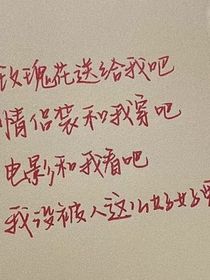 玫瑰花送给我吧
情侣装和我穿吧
电影和我看吧
我没被人这么好好